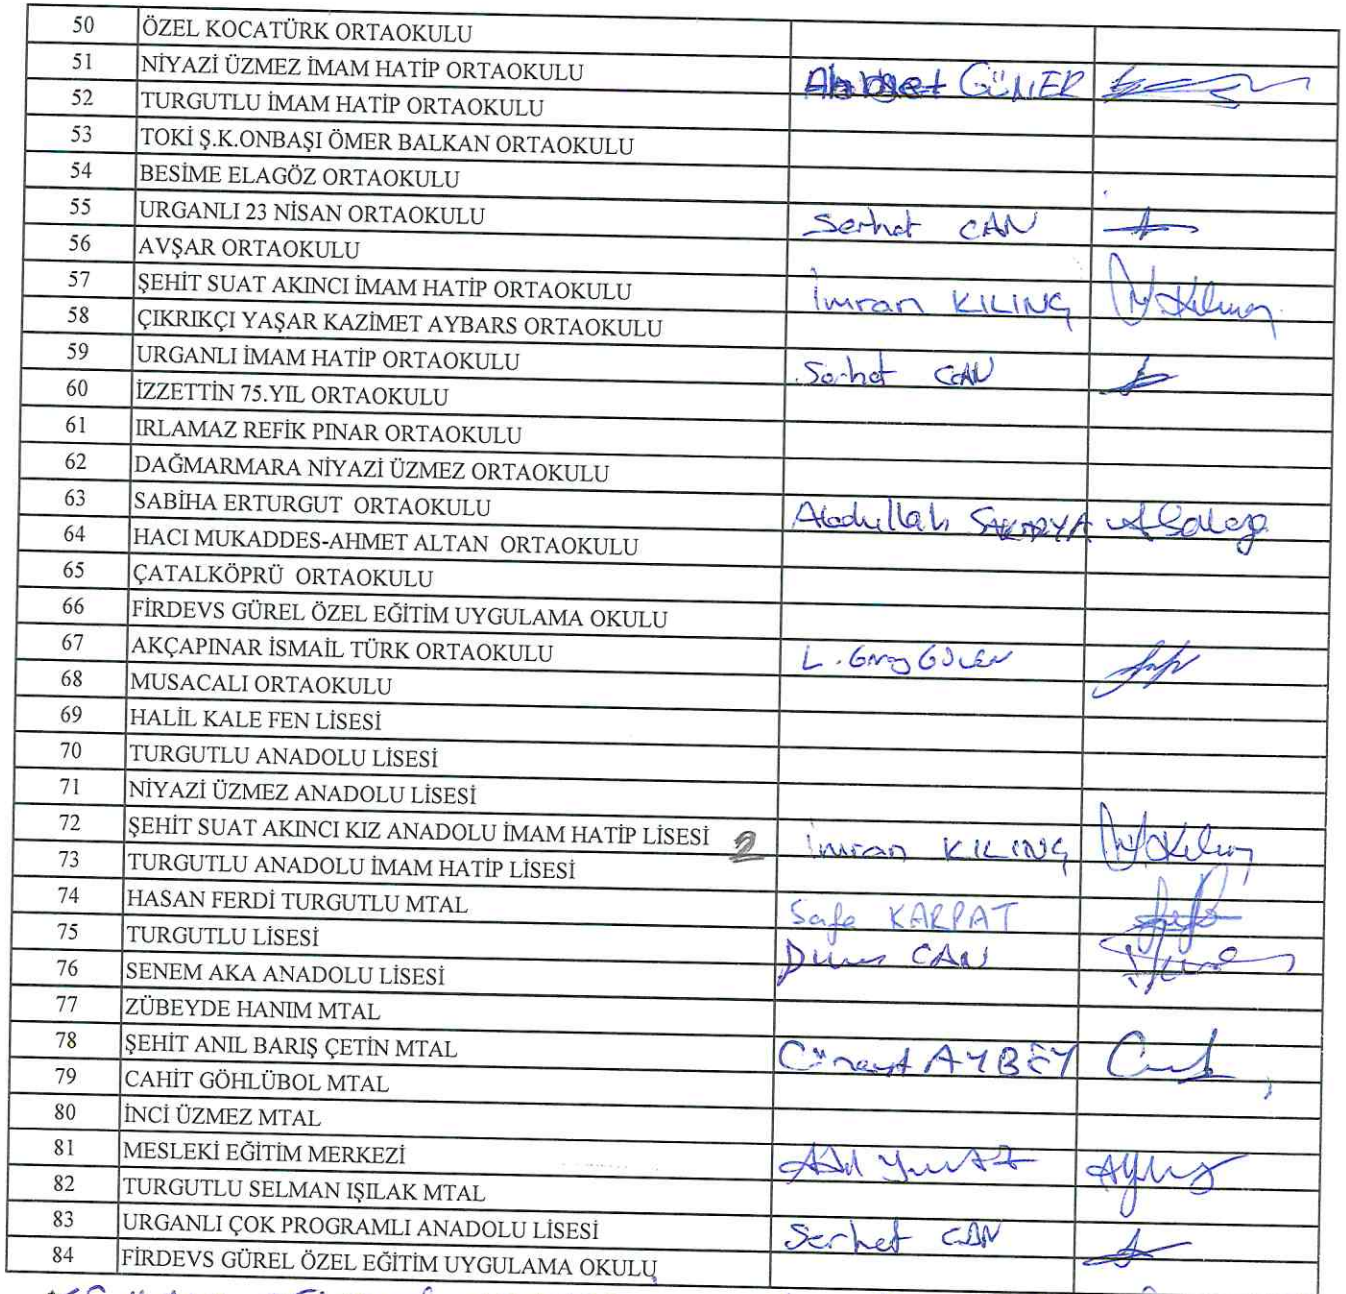 50 ÖZEL KOCATÜRK ORTAOKULU
51 NİYAZİ ÜZMEZ İMAM HATİP ORTAOKULU GÜNER
52 TURGUTLU İMAM HATİP ORTAOKULU
53 TOKİ Ş.K.ONBAŞI ÖMER BALKAN ORTAOKULU
54 BESİME ELAGÖZ ORTAOKULU
55 URGANLI 23 NİSAN ORTAOKULU Serhat CAN
56 AVŞAR ORTAOKULU
57 ŞEHİT SUAT AKINCI İMAM HATİP ORTAOKULU İmran KILINÇ
58 ÇIKRIKÇI YAŞAR KAZİMET AYBARS ORTAOKULU
59 URGANLI İMAM HATİP ORTAOKULU Serhat CAN
60 İZZETTİN 75.YIL ORTAOKULU
61 IRLAMAZ REFİK PINAR ORTAOKULU
62 DAĞMARMARA NİYAZİ ÜZMEZ ORTAOKULU
63 SABİHA ERTURGUT ORTAOKULU Abdullah SAKARYA
64 HACI MUKADDES-AHMET ALTAN ORTAOKULU
65 ÇATALKÖPRÜ ORTAOKULU
66 FİRDEVS GÜREL ÖZEL EĞİTİM UYGULAMA OKULU
67 AKÇAPINAR İSMAİL TÜRK ORTAOKULU L.
68 MUSACALI ORTAOKULU
69 HALİL KALE FEN LİSESİ
70 TURGUTLU ANADOLU LİSESİ
71 NİYAZİ ÜZMEZ ANADOLU LİSESİ
72 ŞEHİT SUAT AKINCI KIZ ANADOLU İMAM HATİP LİSESİ 2 İmran KILINÇ
73 TURGUTLU ANADOLU İMAM HATİP LİSESİ
74 HASAN FERDİ TURGUTLU MTAL Safa KARPAT
75 TURGUTLU LİSESİ CAN
76 SENEM AKA ANADOLU LİSESİ
77 ZÜBEYDE HANIM MTAL
78 ŞEHİT ANIL BARIŞ ÇETİN MTAL Cüneyt AYBEY
79 CAHİT GÖHLÜBOL MTAL
80 İNCİ ÜZMEZ MTAL
81 MESLEKİ EĞİTİM MERKEZİ
82 TURGUTLU SELMAN IŞILAK MTAL
83 URGANLI ÇOK PROGRAMLI ANADOLU LİSESİ Serhat CAN
84 FİRDEVS GÜREL ÖZEL EĞİTİM UYGULAMA OKULU